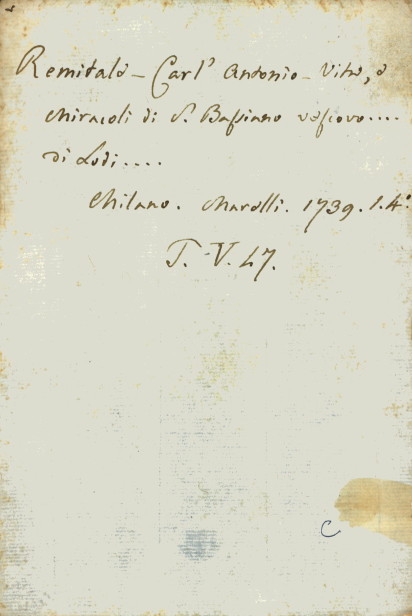 Remitalo - Carl' Antonio - Vita, e
Miracoli di S. Bassiano vescovo....
di Lodi....
Milano. Marelli. 1739. 1.4°.
T. V. 47.
C